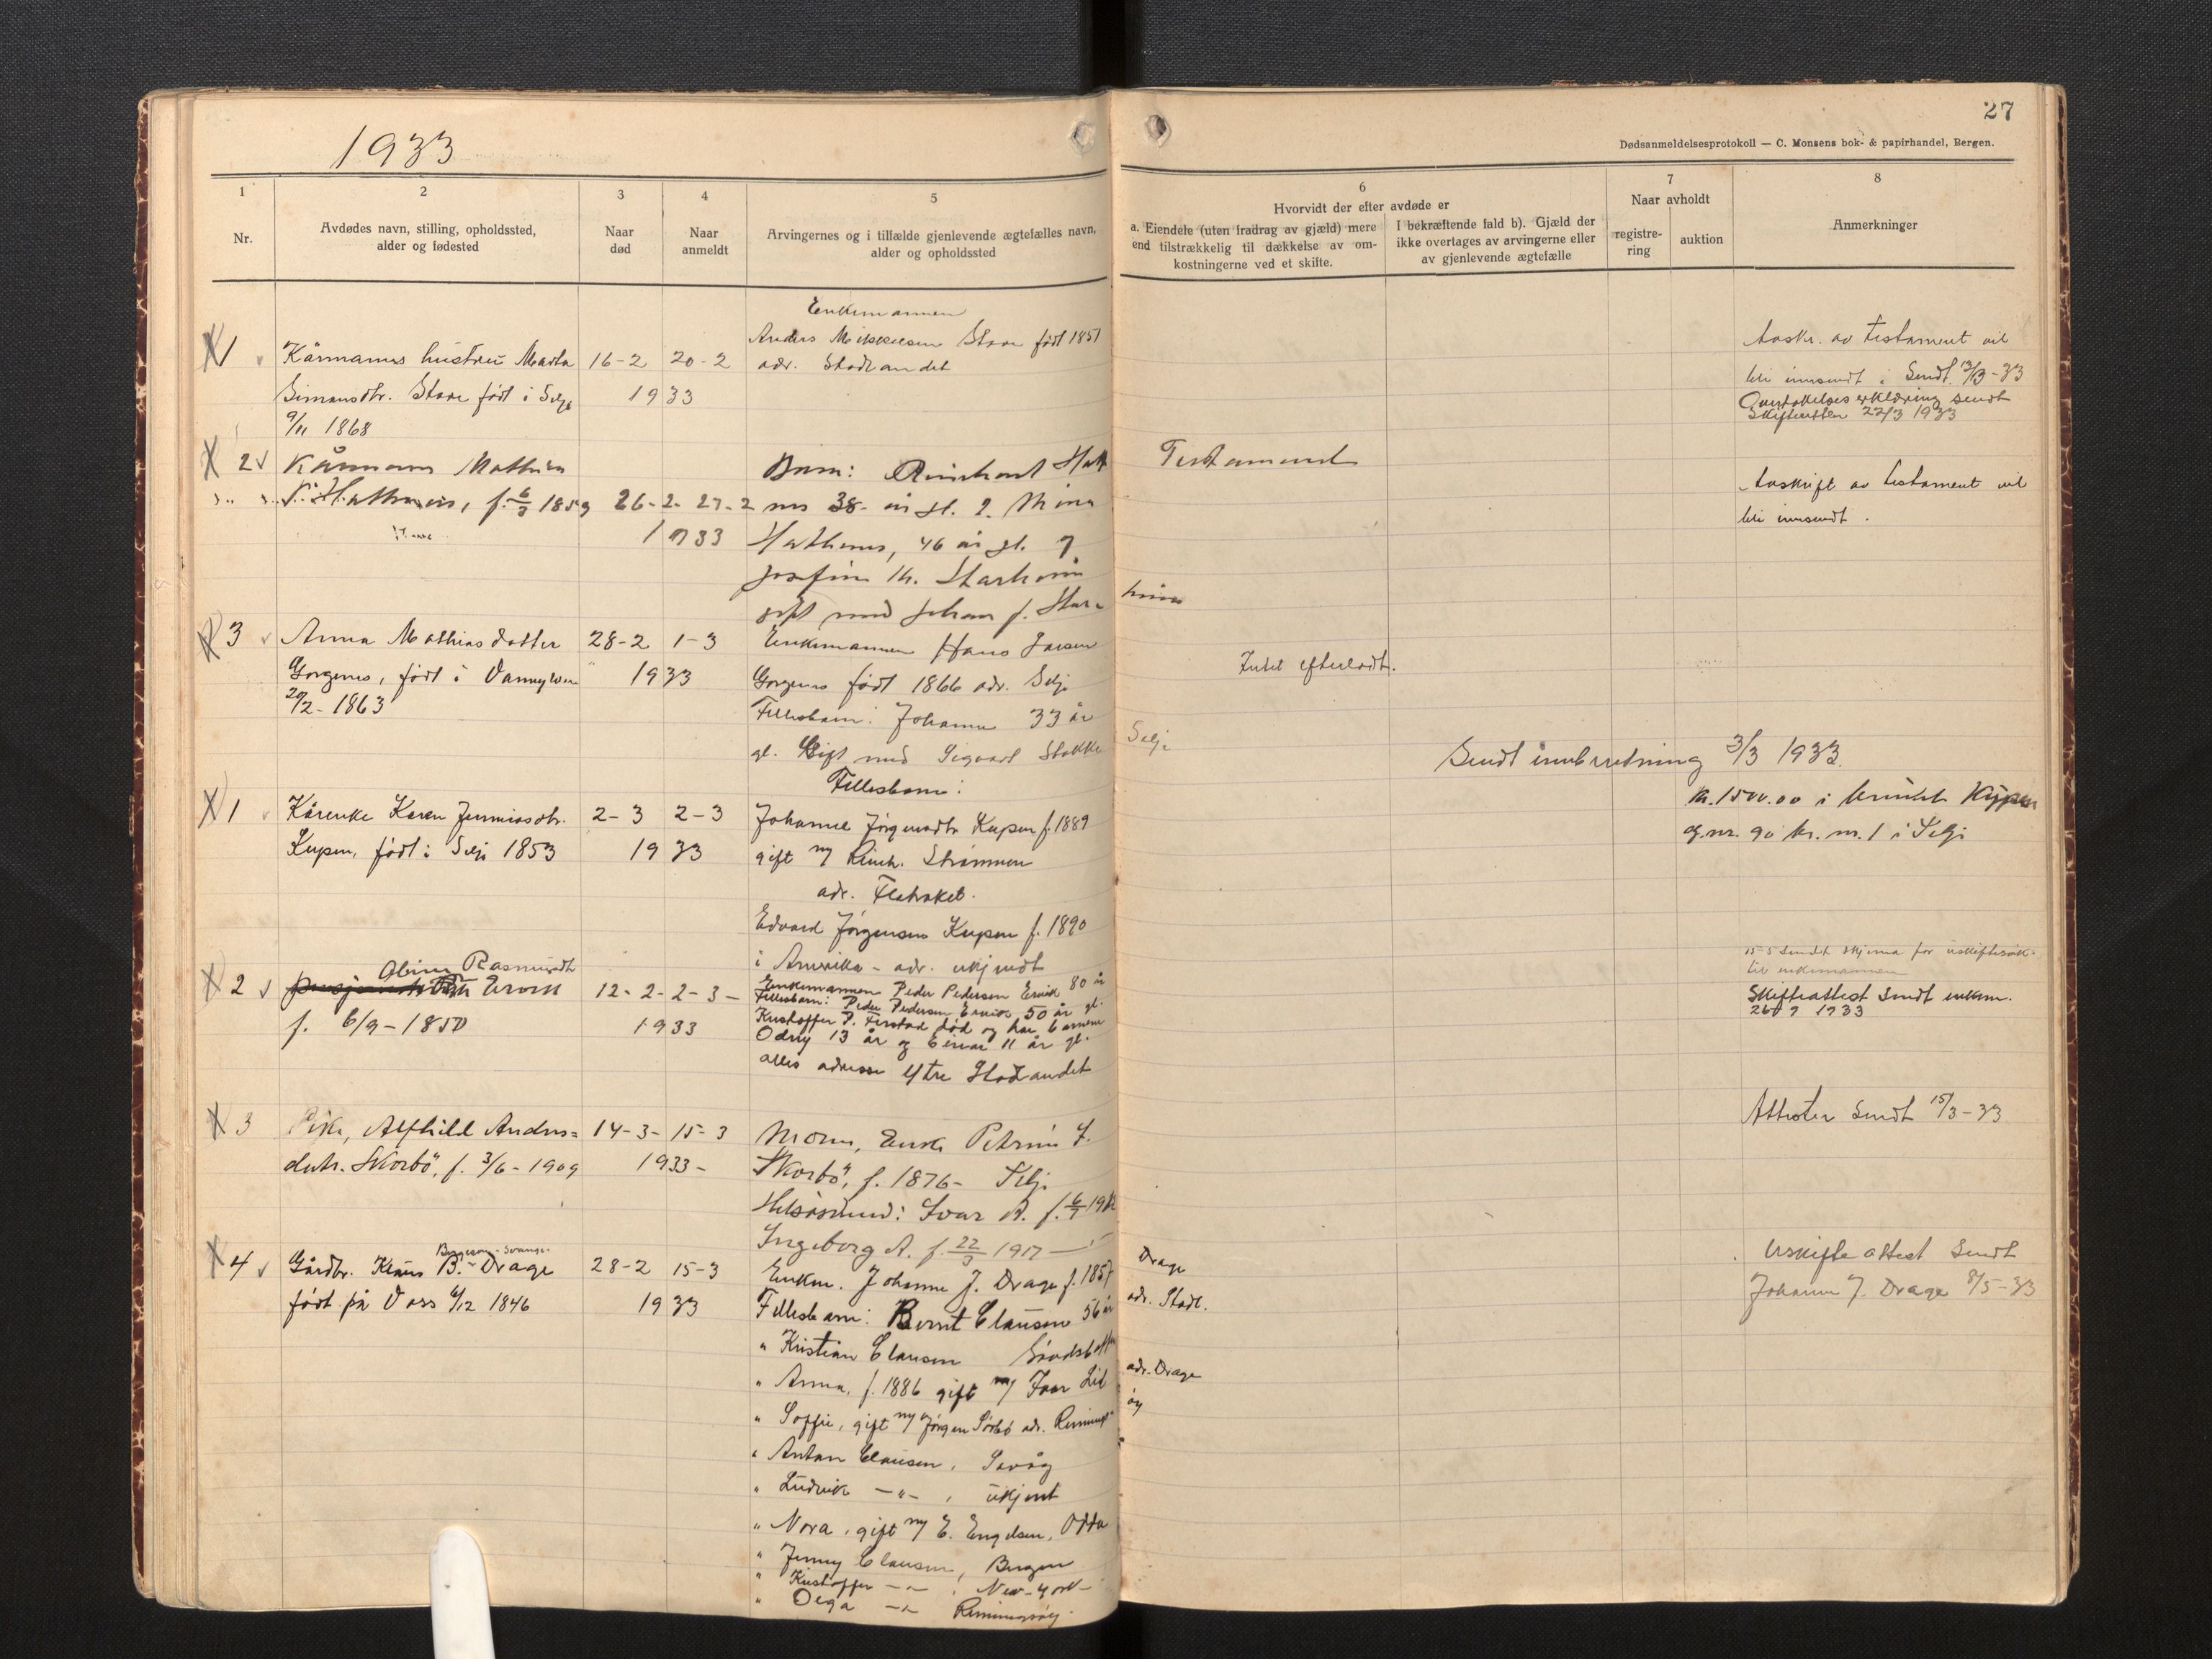 1933
27
Dødsanmeldelsesprotokoll — C. Monsens bok- & papirhandel, Bergen.
1
Nr.
2
Avdødes navn, stilling, opholdssted,
alder og fødested
3
Naar
død
4
Naar
anmeldt
5
Arvingernes og i tilfælde gjenlevende ægtefælles navn,
alder og opholdssted
6
Hvorvidt der efter avdøde er
a. Eiendele (uten fradrag av gjæld) mere
end tilstrækkelig til dækkelse av om-
kostningerne ved et skifte.
I bekræftende fald b). Gjæld der
ikke overtages av arvingerne eller
av gjenlevende ægtefælle
7
Naar avholdt
registre-
ring
auktion
8
Anmerkninger
1
Kårmanns hustru Marta
Simonsdtr. Stave født i Selje
9/11 1868
16-2 20-2
1933
Enkemannen
Anders Mikkelsen Stave født 1851
adr. Stadlandet
Avskr. av testament vil
bli innsendt. Sendt 13/3-33
Overtakelses erklæring sendt
Skifteretten 22/3 1933
2
Kårmann Mathias
f. 6/3 1859
26-2- 27-2
1933
Barn: Reinhart
38- år gl.
46 år gl.
gift med Johan J.
Testament
Avskrift av testament vil
bli innsendt.
3
Anna Mathiasdotter
Gorgenes, født i Vannylven
20/2-1863
28-2 1-3
1933
Enkemannen Hans Larsen
Gorgenes født 1866 adr. Selje
Fellesbarn: Johanne 33 år
gl. Gift med Sigvart Stokke
Selje
Intet efterladt.
Sendt innberetning 3/3 1933.
1
Kårenke Karen Jenninsdtr.
Kupen, født i Selje 1853
2-3 2-3
1933
Fellesbarn:
Johanne Jørgensdtr Kupen f. 1889
gift m/ Reinh. Strømmen
adr. Flatraket.
Edvard Jørgensen Kupen f. 1890
i Amerika - adr. ukjendt
kr. 1500.00 i
g.nr. 90 br. nr. 1 i Selje
2
Oline Rasmusdtr
Ervik
f. 6/9-1850
12-2-2-3-
1933
Enkemannen Peder Pedersen Ervik 80 år
Fellesbarn: Peder Pedersen Ervik 50 år gl.
Kristoffer P. død og har barnene
Odny 13 år og Einar 11 år gl.
alles adresse Ytre Stadlandet
15-5 sendt skjema for uskiftesøk.
til enkemannen
Skifteattest sendt enkem.
3
Pike, Alfhild Anders=
dotr. Skorbö, f. 3/6-1909
14-3-15-3
1933-
Moren, Enke Petrine J.
Skorbö, f. 1876- Selje
Helsøskend: Ivar A. f. 6/7
Ingeborg A. f. 22/3 1917
Attester sendt 15/3-33
4
Gårdbr. Klaus B. Drage
født på Voss 6/12 1846
28-2 15-3
1933
Enken. Johanne J. Drage f. 1857
Drage
Fellesbarn: Bernt Clausen 56 år
adr. Stadl.
" Kristian Clausen
" Anna, f. 1886 gift m/ Ivar Lid
adr. Drage
" Soffie, gift m/ Jørgen Sørbö adr. Rimings
øy
" Anton Clausen, Sevåg
" Ludvik —"— , ukjent
" Nora, gift m/ E. Engelsen, Odda
" Jenny Clausen, Bergen
" Kristoffer —"— , New-York-
" Olga —"— Remingsøy.
Uskifteattest sendt
Johanne J. Drage 8/5-33